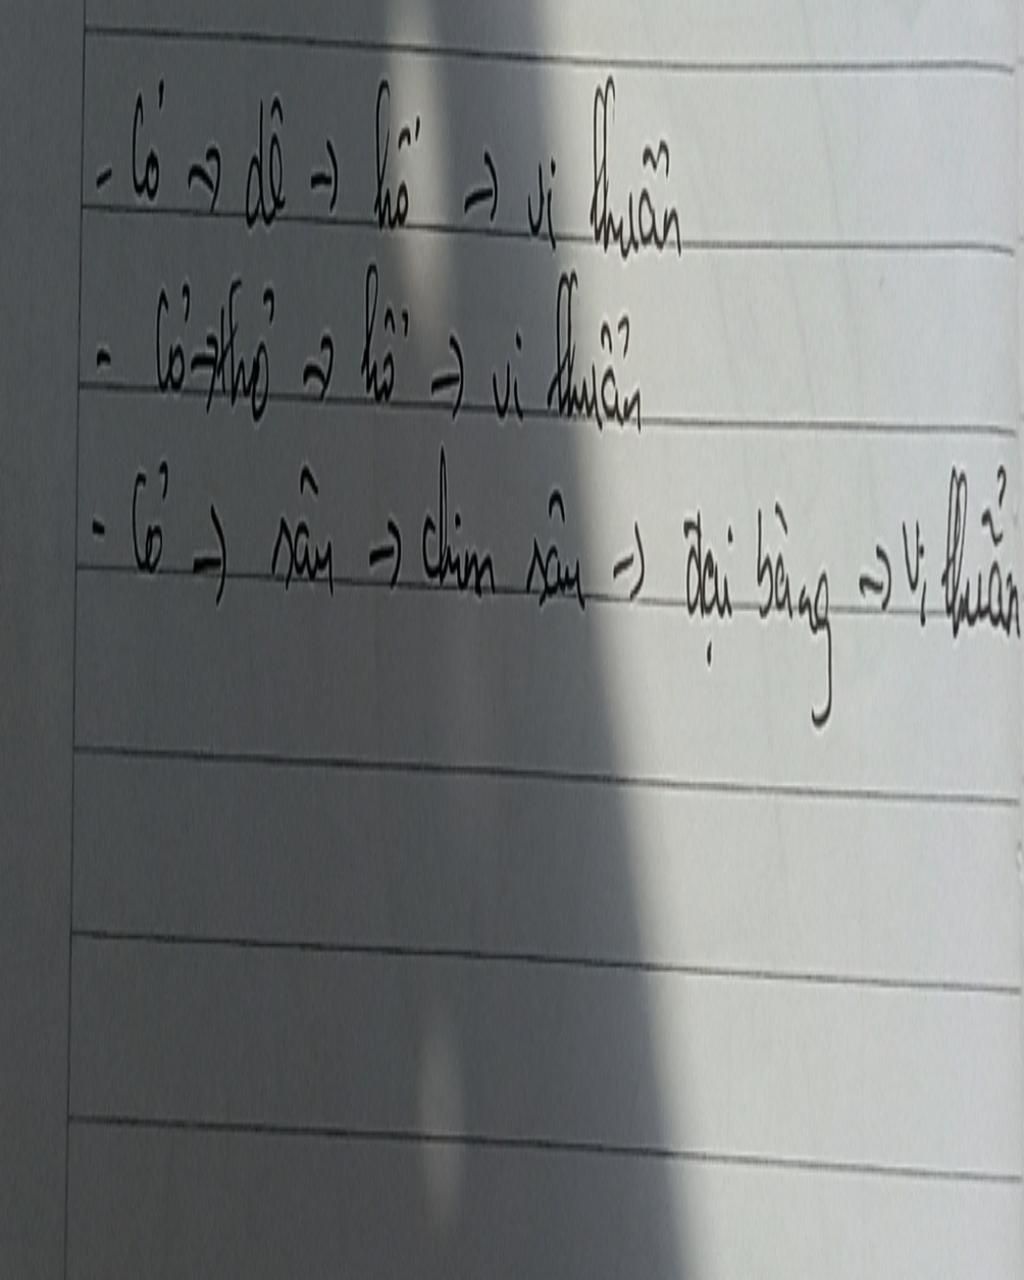 - Cỏ → dê → hổ → vi thuẩn
- Cỏ → thỏ → hổ → vi thuẩn
- Cỏ → sâu → chim sâu → đại bàng → vi thuẩn